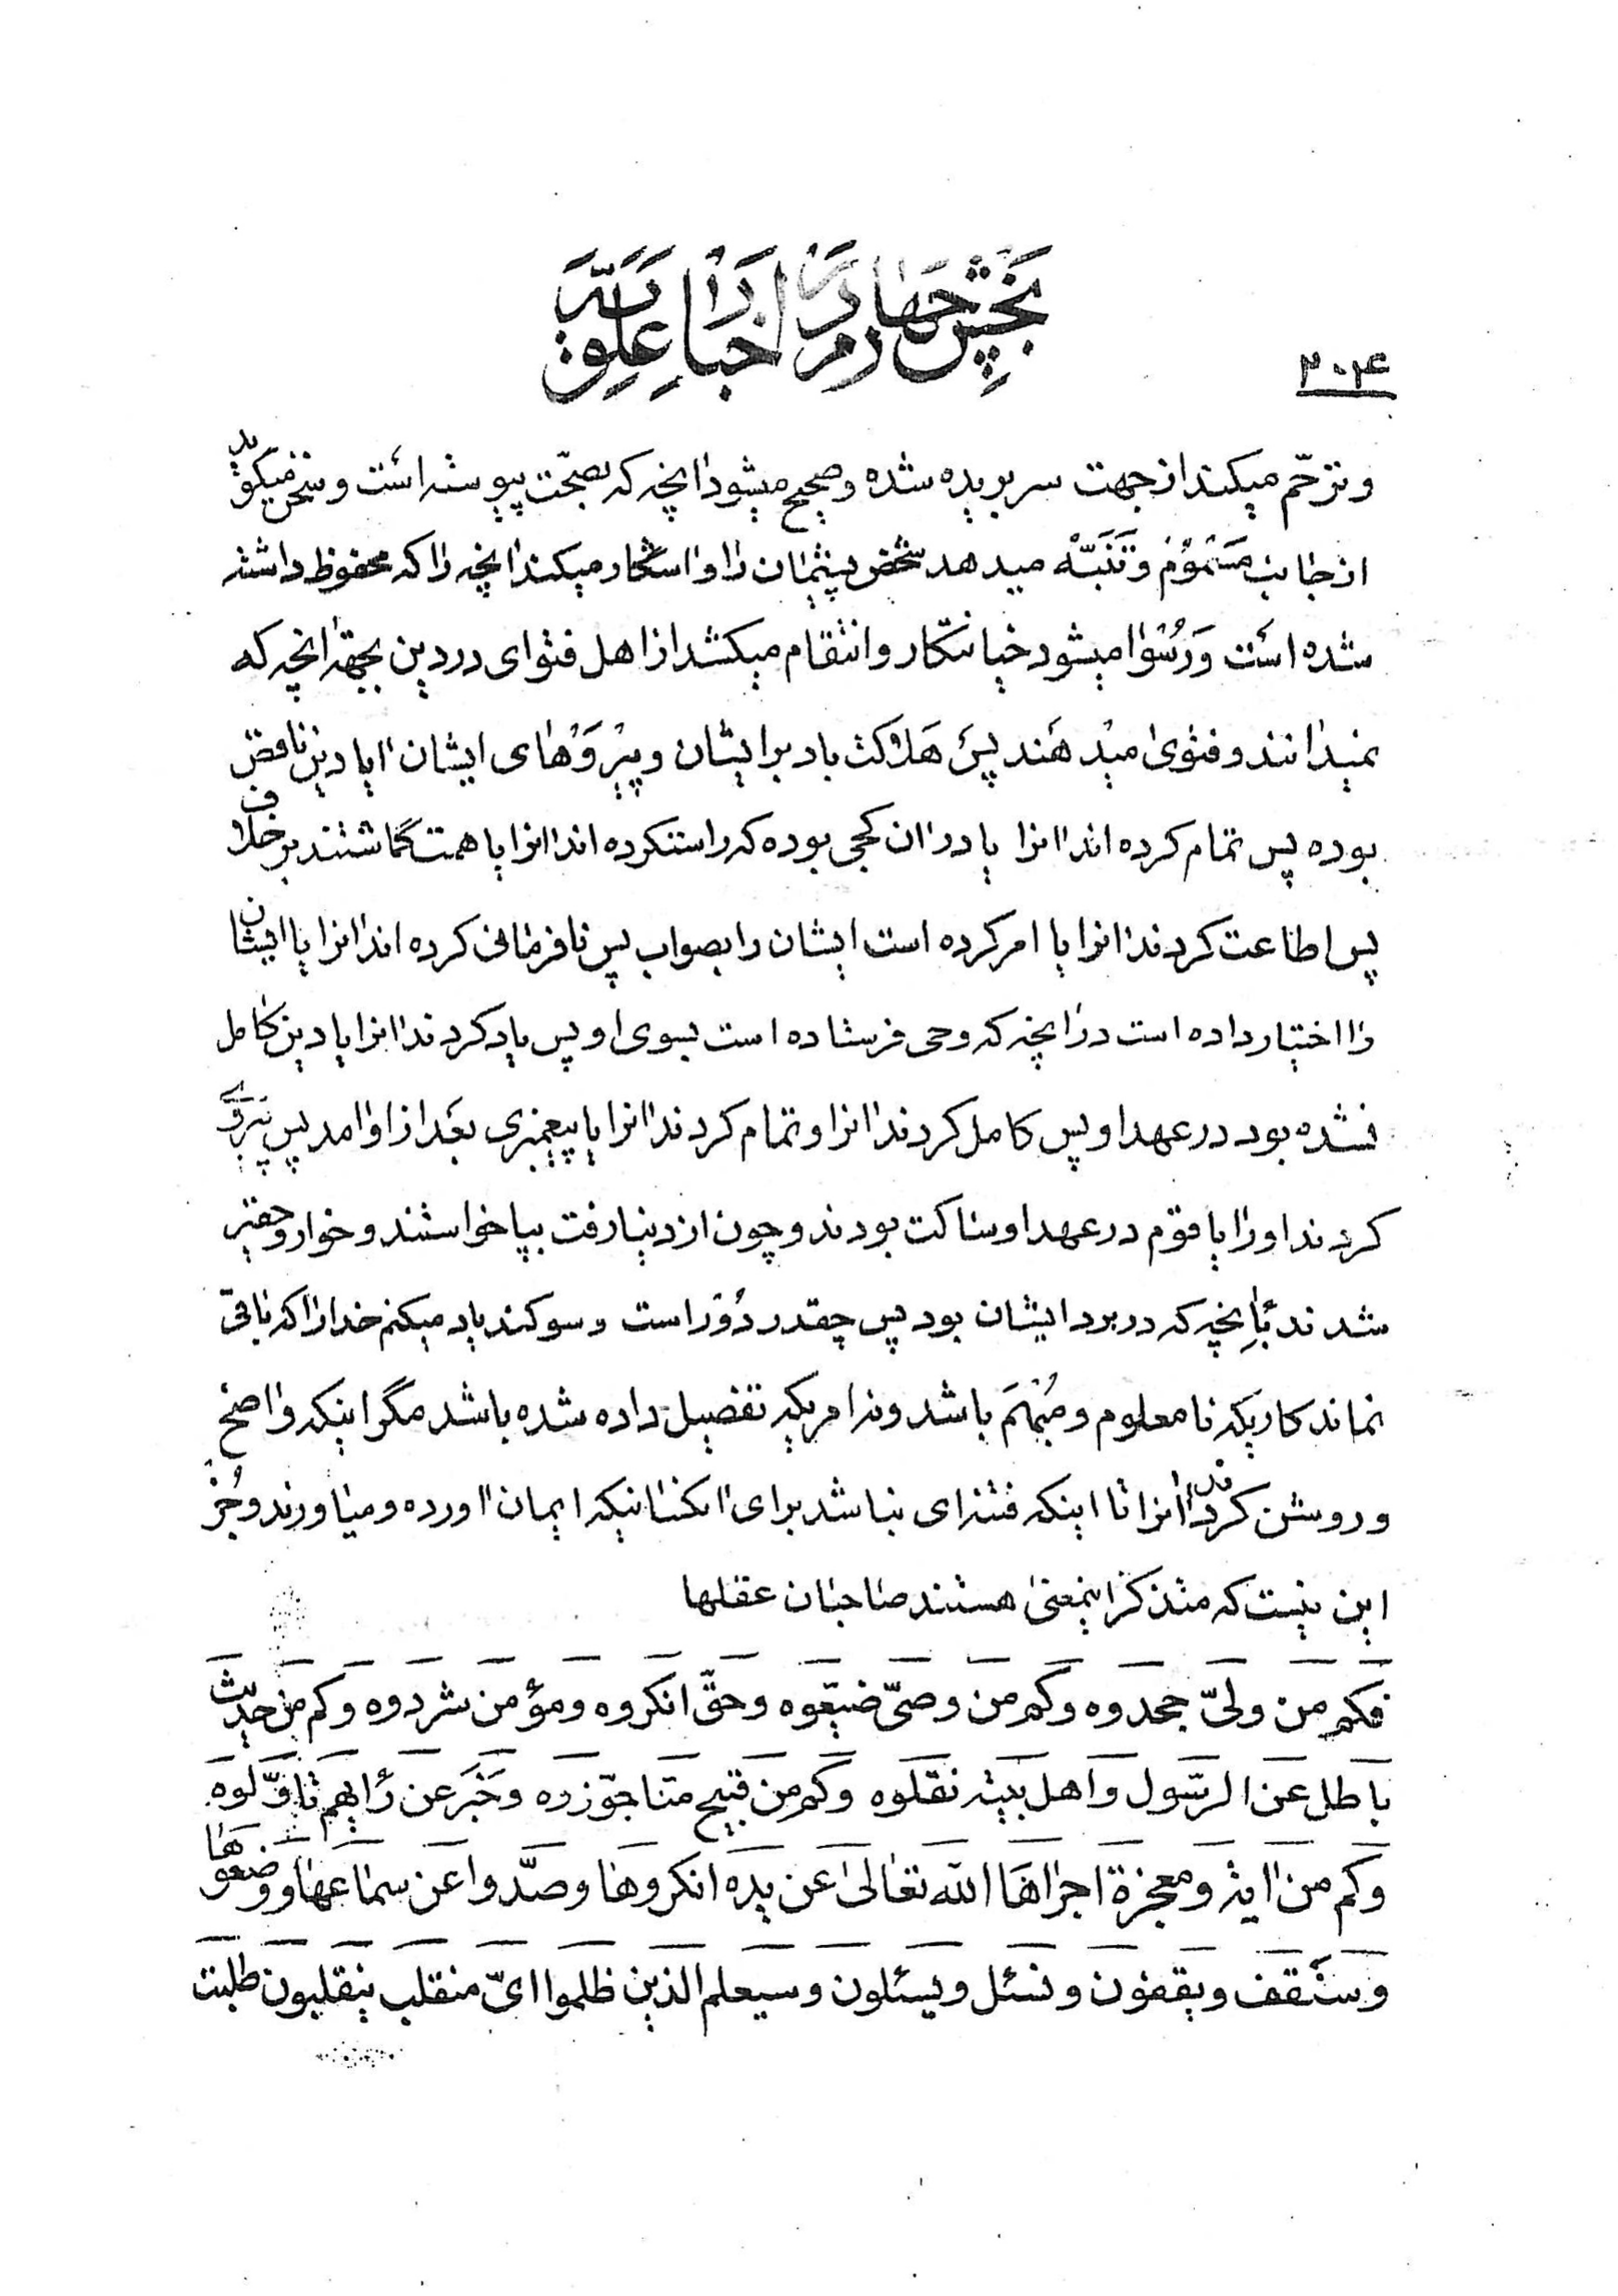 بخش چهارم در اخبار علویه
۲۰۴
و ترحّم میکند از جهت سر بریده شده و صحیح میشود انچه که بصحّت پیوسته است و سخن میگوید
از جانب مسموم و تنبّه میدهد شخص پشیمان را و اشکار میکند انچه را که محفوظ داشته
شده است و رسوا میشود خیانتکار و انتقام میکشد از اهل فتوای در دین بجهة انچه که
نمیدانند و فتوی میدهند پس هلاکت باد بر ایشان و پیروهای ایشان ایا دین ناقص
بوده پس تمام کرده اند انرا یا در ان کجی بوده که راستکرده اند انرا یا همت گماشتند بر خلاف
پس اطاعت کردند انرا یا امر کرده است ایشان را بصواب پس نافرمانی کرده اند انرا یا ایشان
را اختیار داده است در انچه که وحی فرستاده است بسوی او پس یاد کردند انرا یا دین کامل
نشده بود در عهد او پس کامل کردند انرا و تمام کردند انرا یا پیغمبری بعد از او امد پس پیروی
کردند او را یا قوم در عهد او ساکت بودند و چون از دنیا رفت بپا خواستند و خوار و حقیر
شدند بانچه که در برد ایشان بود پس چقدر دور است و سوکند یاد میکنم خدا را که باقی
نماند کاریکه نامعلوم و مبهم باشد و نه امریکه تفضیل داده شده باشد مگر اینکه واضح
و روشن کردند انرا تا اینکه فتنه ای نباشد برای انکسانیکه ایمان اورده و میاورند و جز
این نیست که متذکر اینمعنی هستند صاحبان عقلها
فکم من ولیّ جحدوه و کم من وصیّ ضیّعوه و حقّ انکروه و مؤمن شردوه و کم من حدیث
باطل عن الرّسول و اهل بیته نقلوه و کم من قبیح منّا جوّزوه و خبر عن رایهم تاوّلوه
و کم من ایة و معجزة اجراها الله تعالی عن یده انکروها و صدّوا عن سماعها و وضعوها
و سنقف و یقفون و نسئل و یسئلون و سیعلم الذین ظلموا ایّ منقلب ینقلبون طلبت